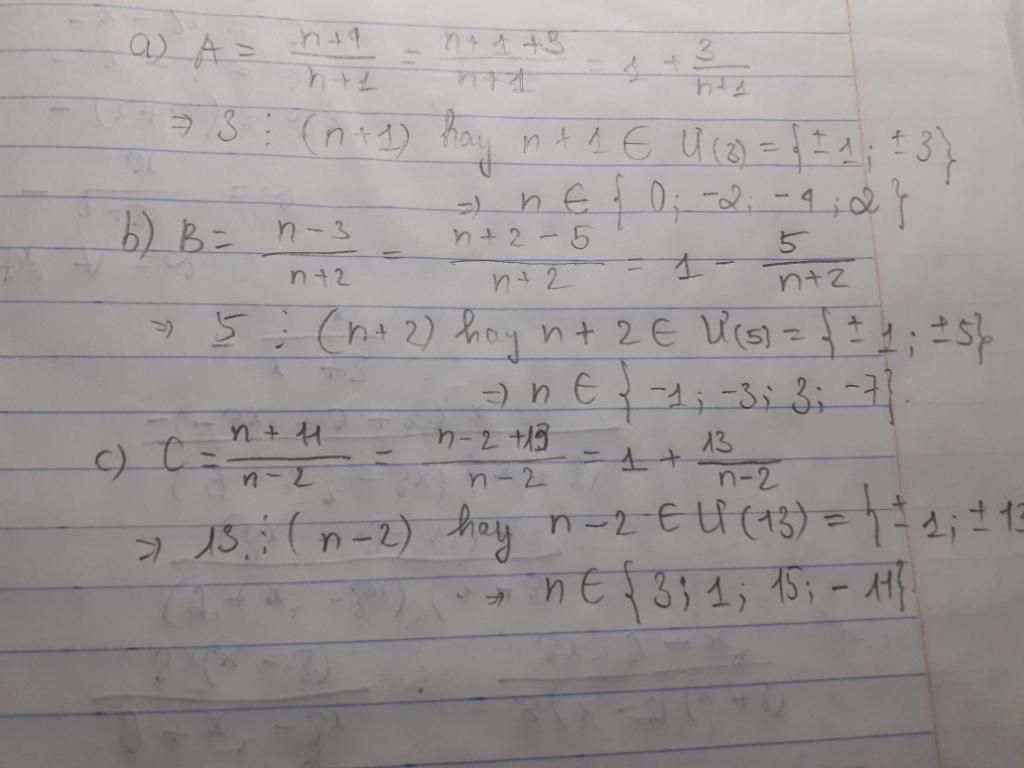 a) A = \frac{n+4}{n+1} = \frac{n+1+3}{n+1} = 1 + \frac{3}{n+1}
⇒ 3 ⋮ (n+1) hay n+1 ∈ Ư(3) = {±1; ±3}
⇒ n ∈ { 0; -2; -4; 2 }
b) B = \frac{n-3}{n+2} = \frac{n+2-5}{n+2} = 1 - \frac{5}{n+2}
⇒ 5 ⋮ (n+2) hay n+2 ∈ Ư(5) = {±1; ±5}
⇒ n ∈ { -1; -3; 3; -7}.
c) C = \frac{n+11}{n-2} = \frac{n-2+13}{n-2} = 1 + \frac{13}{n-2}
⇒ 13 ⋮ (n-2) hay n-2 ∈ Ư(13) = {±1; ±13
⇒ n ∈ {3; 1; 15; -11}.